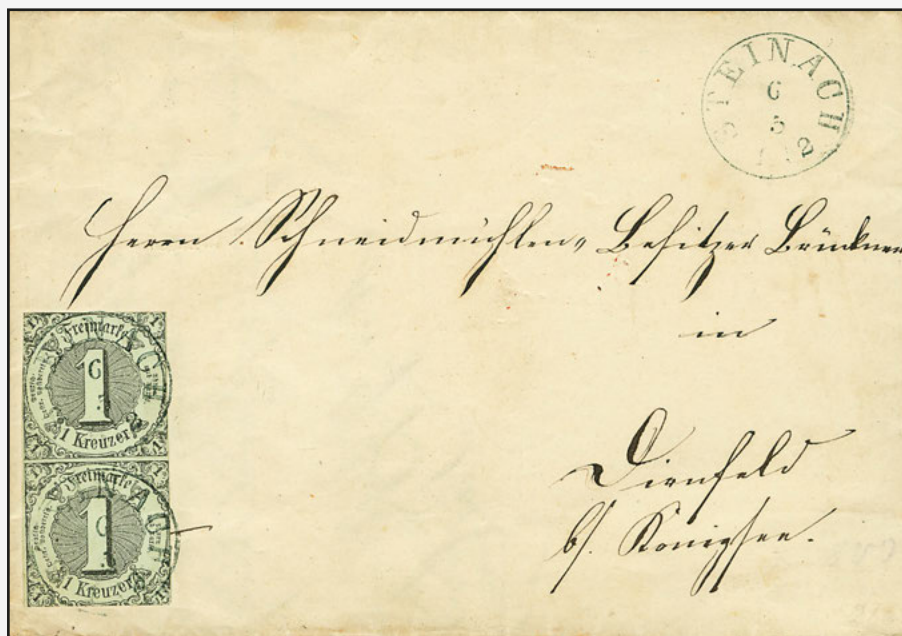 STEINACH
6
5
2
Herrn Schneidmühlen-Besitzer Brückner
in
Dirnfeld
b/. Königsee.
1 1
Freimarke
1
1 Kreuzer
1 1
Freimarke
1
1 Kreuzer
1 1